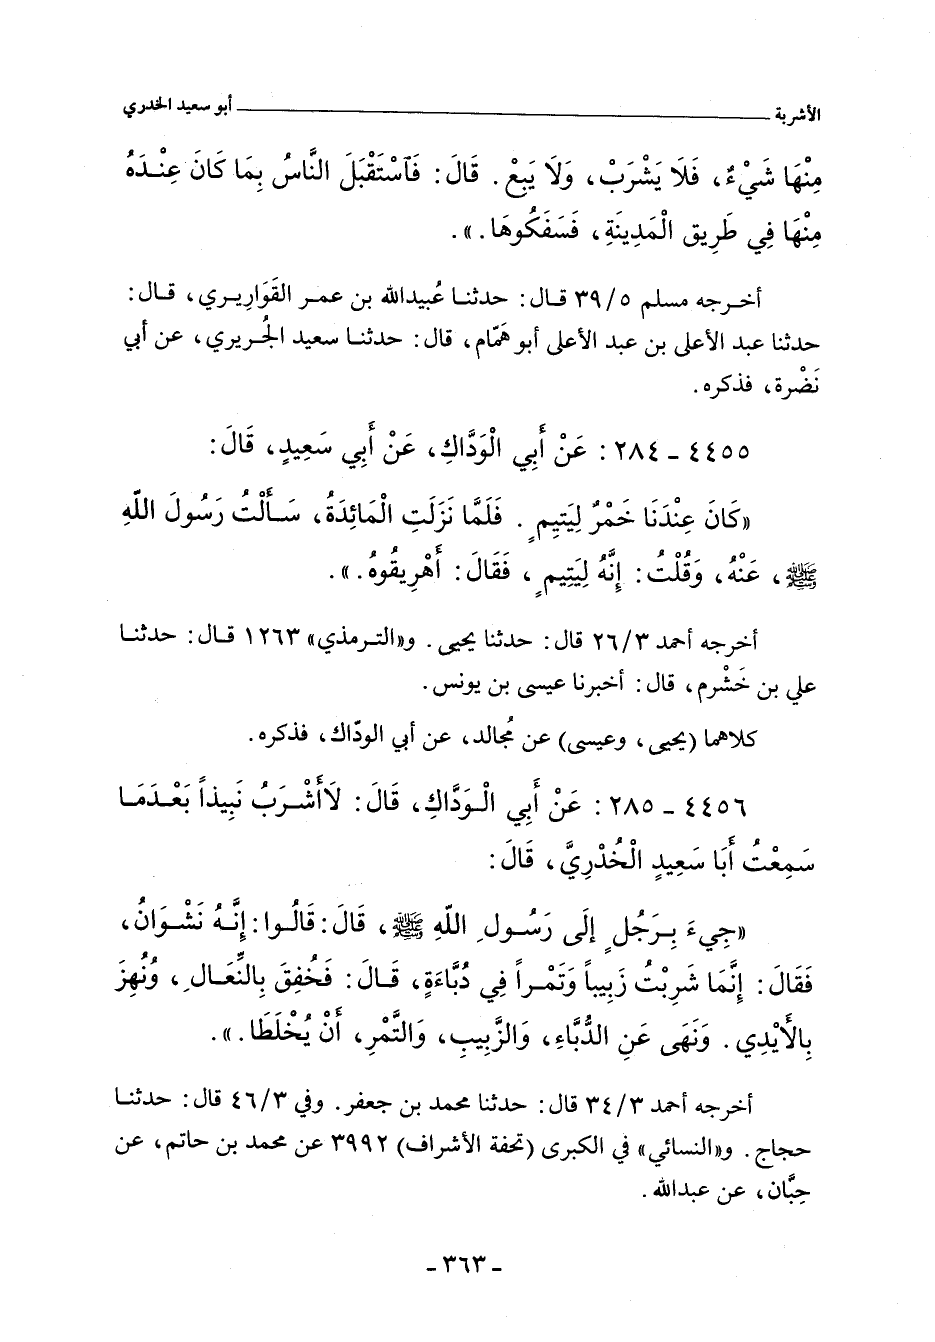 الأشربة ــــــــــــــــــــ أبو سعيد الخدري
مِنْهَا شَيْءٌ، فَلَا يَشْرَبْ، وَلَا يَبِعْ. قَالَ: فَآسْتَقْبَلَ النَّاسُ بِمَا كَانَ عِنْدَهُ
مِنْهَا فِي طَرِيقِ الْمَدِينَةِ، فَسَفَكُوهَا.».
أخرجه مسلم ٣٩/٥ قال: حدثنا عُبيدالله بن عمر القَوَارِيري، قال:
حدثنا عبد الأعلى بن عبد الأعلى أبو هَمّام، قال: حدثنا سعيد الجُريري، عن أبي
نَضْرة، فذكره.
٤٤٥٥ ـ ٢٨٤: عَنْ أَبِي الْوَدَّاكِ، عَنْ أَبِي سَعِيدٍ، قَالَ:
«كَانَ عِنْدَنَا خَمْرٌ لِيَتِيمٍ. فَلَمَّا نَزَلَتِ الْمَائِدَةُ، سَأَلْتُ رَسُولَ اللّهِ
ﷺ، عَنْهُ، وَقُلْتُ: إِنَّهُ لِيَتِيمٍ، فَقَالَ: أَهْرِيقُوهُ.».
أخرجه أحمد ٢٦/٣ قال: حدثنا يحيى. و«الترمذي» ١٢٦٣ قال: حدثنا
علي بن خَشْرم، قال: أخبرنا عيسى بن يونس.
كلاهما (يحيى، وعيسى) عن مُجالد، عن أبي الودّاك، فذكره.
٤٤٥٦ ـ ٢٨٥: عَنْ أَبِي الْوَدَّاكِ، قَالَ: لَا أَشْرَبُ نَبِيذاً بَعْدَمَا
سَمِعْتُ أَبَا سَعِيدٍ الْخُدْرِيَّ، قَالَ:
«جِيءَ بِرَجُلٍ إِلَى رَسُولِ اللّهِ ﷺ، قَالَ: قَالُوا: إِنَّهُ نَشْوَانُ،
فَقَالَ: إِنَّمَا شَرِبْتُ زَبِيباً وَتَمْراً فِي دُبَّاءَةٍ، قَالَ: فَخُفِقَ بِالنِّعَالِ، وَنُهِزَ
بِالْأَيْدِي. وَنَهَى عَنِ الدُّبَّاءِ، وَالزَّبِيبِ، وَالتَّمْرِ، أَنْ يُخْلَطَا.».
أخرجه أحمد ٣٤/٣ قال: حدثنا محمد بن جعفر. وفي ٤٦/٣ قال: حدثنا
حجاج. و«النسائي» في الكبرى (تحفة الأشراف) ٣٩٩٢ عن محمد بن حاتم، عن
حِبَّان، عن عبدالله.
- ٣٦٣ -